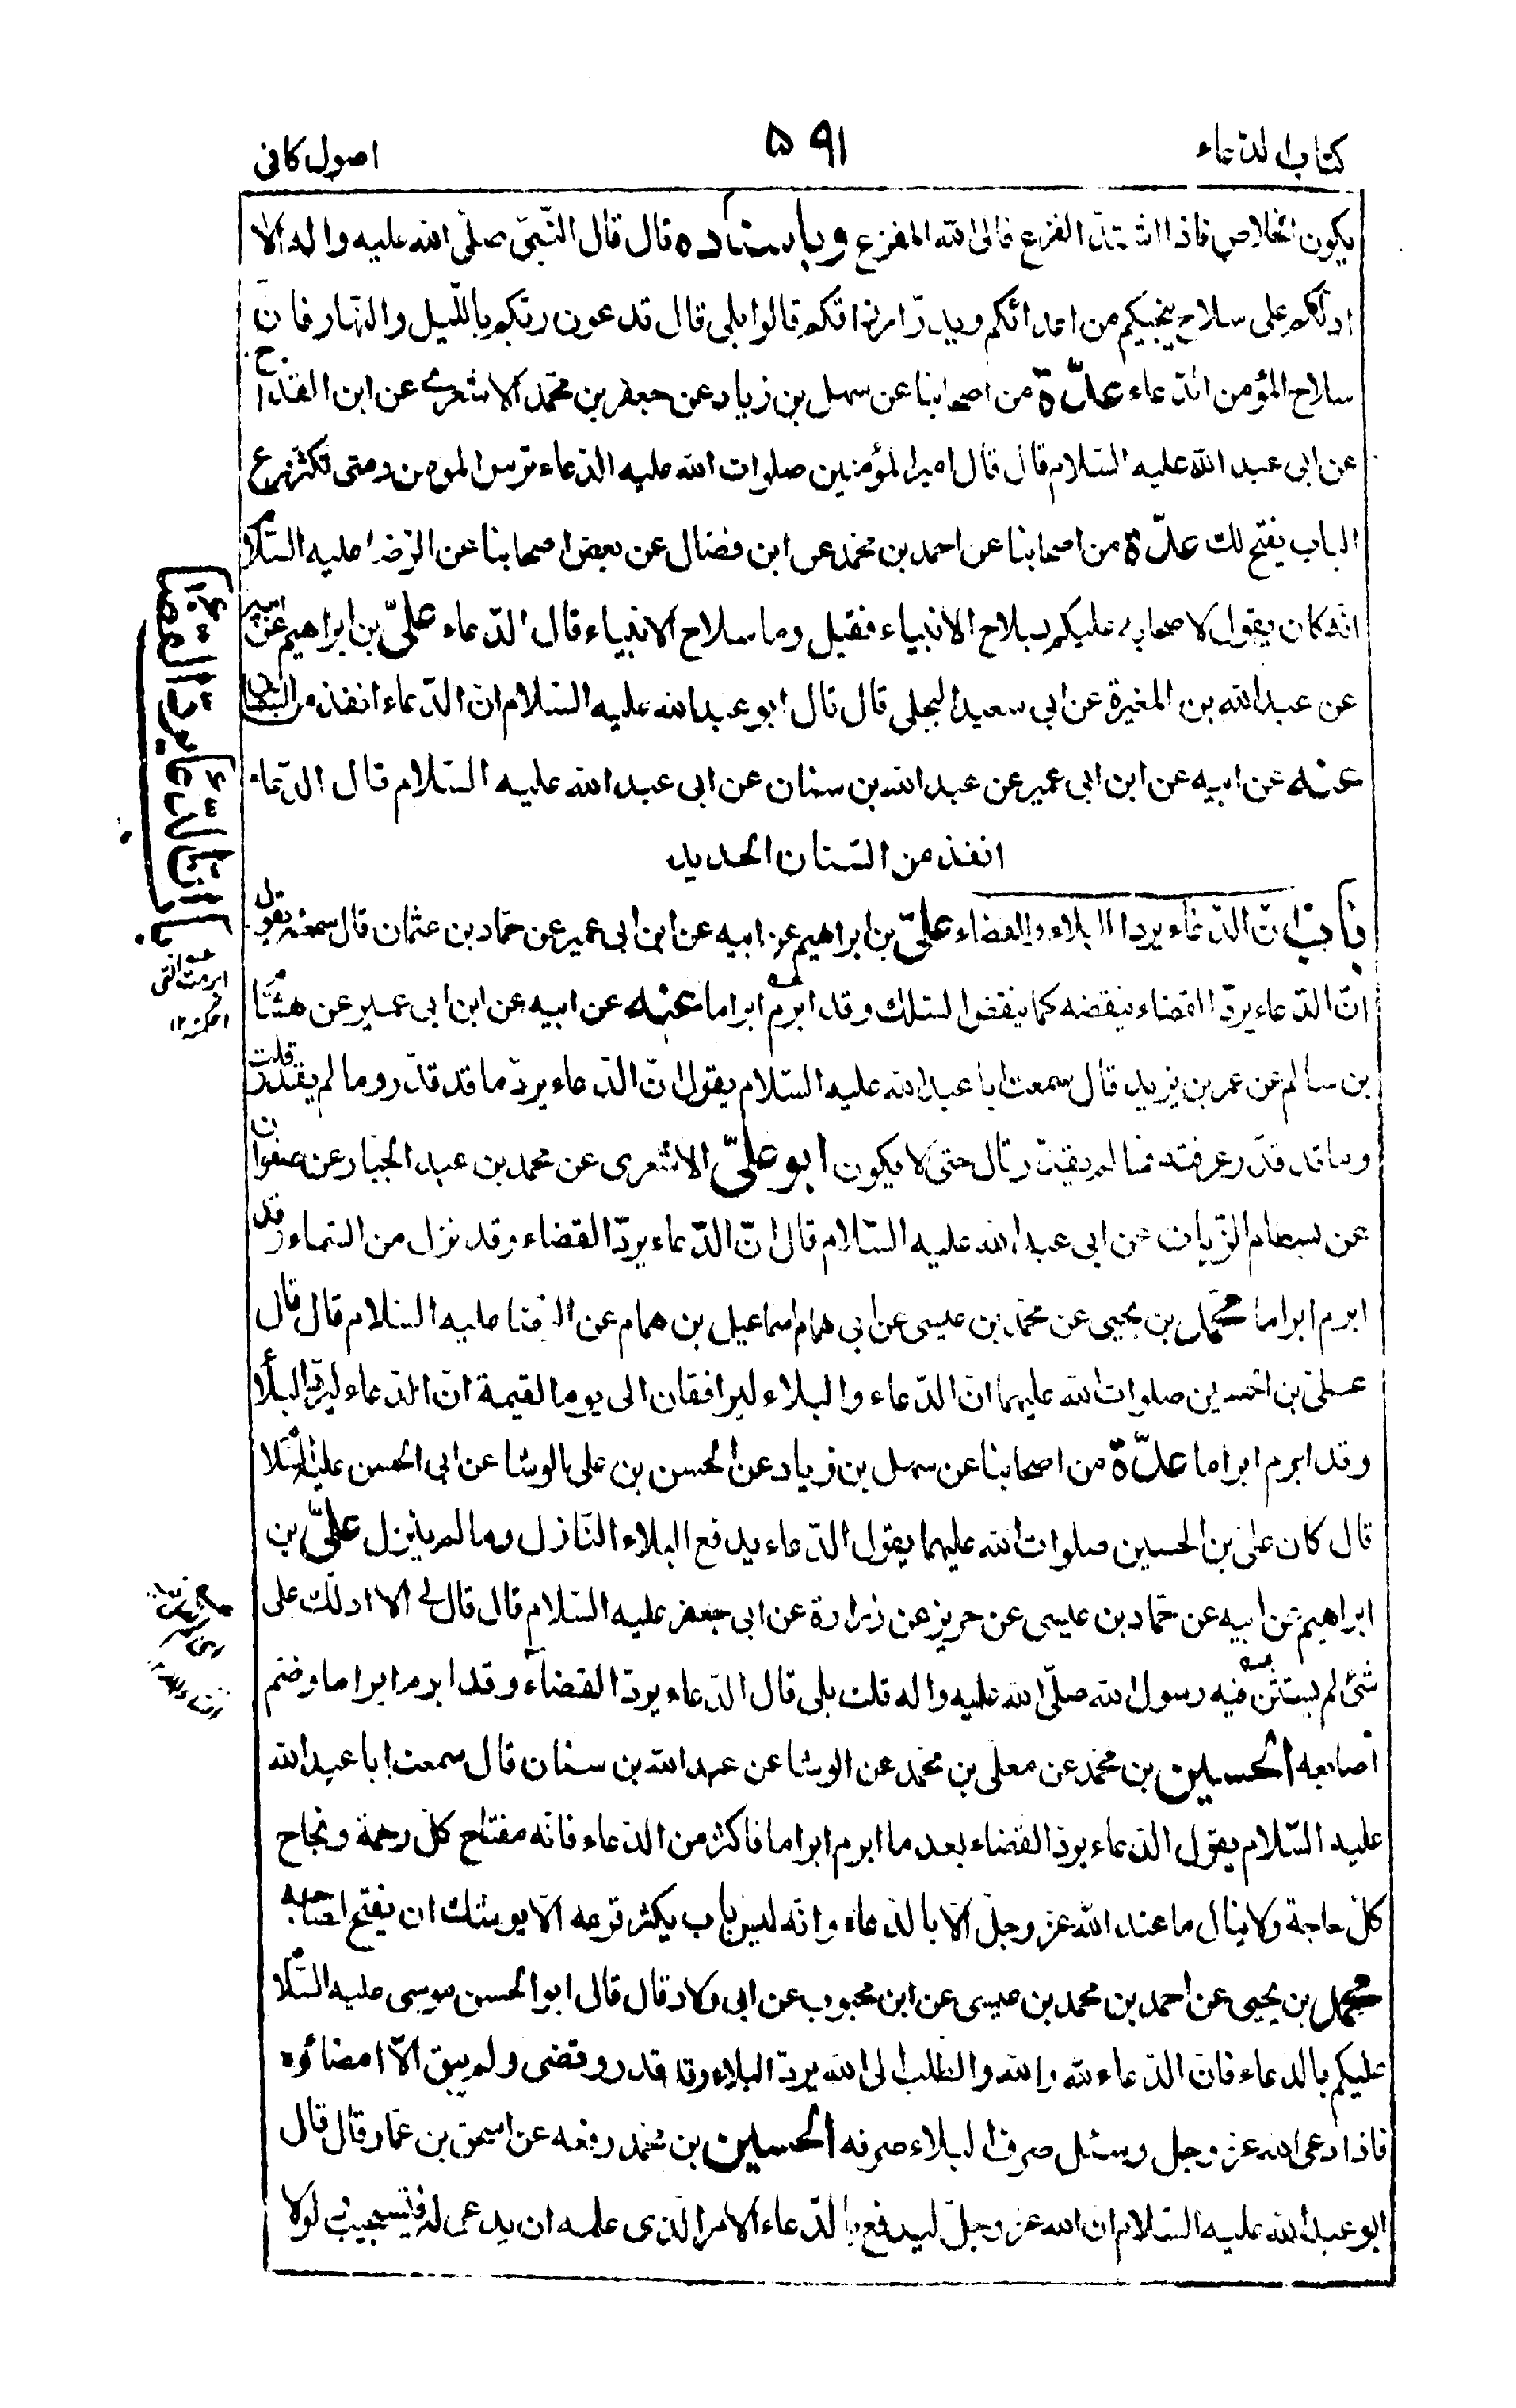 كتاب الدعاء
٥٩١
اصول كافى
يكون الخلاص فاذا اشتدّ الفزع فالى الله المفزع وباسناده قال قال النّبىّ صلّى الله عليه واله الا
ادلّكم على سلاح ينجيكم من اعدائكم ويدرّ ارزاقكم قالوا بلى قال تدعون ربّكم باللّيل والنّهار فانّ
سلاح المؤمن الدّعاء عدّة من اصحابنا عن سهل بن زياد عن جعفر بن محمّد الاشعرى عن ابن القدّاح
عن ابى عبد الله عليه السّلام قال قال امير المؤمنين صلوات الله عليه الدّعاء ترس المؤمن ومتى تكثر قرع
الباب يفتح لك عدّة من اصحابنا عن احمد بن محمّد عن ابن فضال عن بعض اصحابنا عن الرّضا عليه السّلا
انّه كان يقول لاصحابه عليكم بسلاح الانبياء فقيل وما سلاح الانبياء قال الدّعاء علىّ بن ابراهيم عن ابيه
عن عبد الله بن المغيرة عن ابى سعيد البجلى قال قال ابو عبد الله عليه السّلام انّ الدّعاء انفذ من السّنان
عنه عن ابيه عن ابن ابى عمير عن عبد الله بن سنان عن ابى عبد الله عليه السّلام قال الدّعاء
انفذ من السّنان الحديد
باب انّ الدّعاء يردّ البلاء والقضاء علىّ بن ابراهيم عن ابيه عن ابن ابى عمير عن حمّاد بن عثمان قال سمعته يقول
انّ الدّعاء يردّ القضاء ينقضه كما ينقض السّلك وقد ابرم ابراما عنه عن ابيه عن ابن ابى عمير عن هشام
بن سالم عن عمر بن يزيد قال سمعت ابا عبد الله عليه السّلام يقول انّ الدّعاء يردّ ما قد قدّر وما لم يقدّر قلت
وما قد قدّر عرفته فما لم يقدّر قال حتىّ لا يكون ابو علىّ الاشعرى عن محمد بن عبد الجبّار عن صفوان
عن بسطام الزّيات عن ابى عبد الله عليه السّلام قال انّ الدّعاء يردّ القضاء وقد نزل من السّماء وقد
ابرم ابراما محمّد بن يحيى عن محمّد بن عيسى عن ابى همام اسماعيل بن همام عن الرّضا عليه السّلام قال قال
علىّ بن الحسين صلوات الله عليهما انّ الدّعاء والبلاء ليرافقان الى يوم القيمة انّ الدّعاء ليردّ البلا
وقد ابرم ابراما عدّة من اصحابنا عن سهل بن زياد عن الحسن بن على الوشا عن ابى الحسن عليه السّلا
قال كان علىّ بن الحسين صلوات الله عليهما يقول الدّعاء يدفع البلاء النّازل وما لم ينزل علىّ بن
ابراهيم عن ابيه عن حمّاد بن عيسى عن حريز عن زرارة عن ابى جعفر عليه السّلام قال قال لى الا ادلّك على
شئ لم يستثن فيه رسول الله صلّى الله عليه واله قلت بلى قال الدّعاء يردّ القضاء وقد ابرم ابراما وضم
اصابعه الحسين بن محمّد عن معلى بن محمّد عن الوشا عن عبد الله بن سنان قال سمعت ابا عبد الله
عليه السّلام يقول الدّعاء يردّ القضاء بعد ما ابرم ابراما فاكثر من الدّعاء فانّه مفتاح كلّ رحمة ونجاح
كلّ حاجة ولا ينال ما عند الله عزّ وجلّ الّا بالدّعاء وانّه ليس باب يكثر قرعه الّا يوشك ان يفتح لصاحبه
محمّد بن يحيى عن احمد بن محمد بن عيسى عن ابن محبوب عن ابى ولاد قال قال ابو الحسن موسى عليه السّلا
عليكم بالدّعاء فانّ الدّعاء لله والله والطّلب الى الله يردّ البلاء وقد قدر وقضى ولم يبق الّا امضاؤه
فاذا دعى الله عز وجل وسئل صرف البلاء صرفه الحسين بن محمّد رفعه عن اسحق بن عمّار قال قال
ابو عبد الله عليه السّلام ان الله عز وجلّ ليدفع بالدّعاء الامر الّذى علمه ان يدعى له فيستجيب لولا
باب انّ الدّعاء يردّ البلاء والقضاء